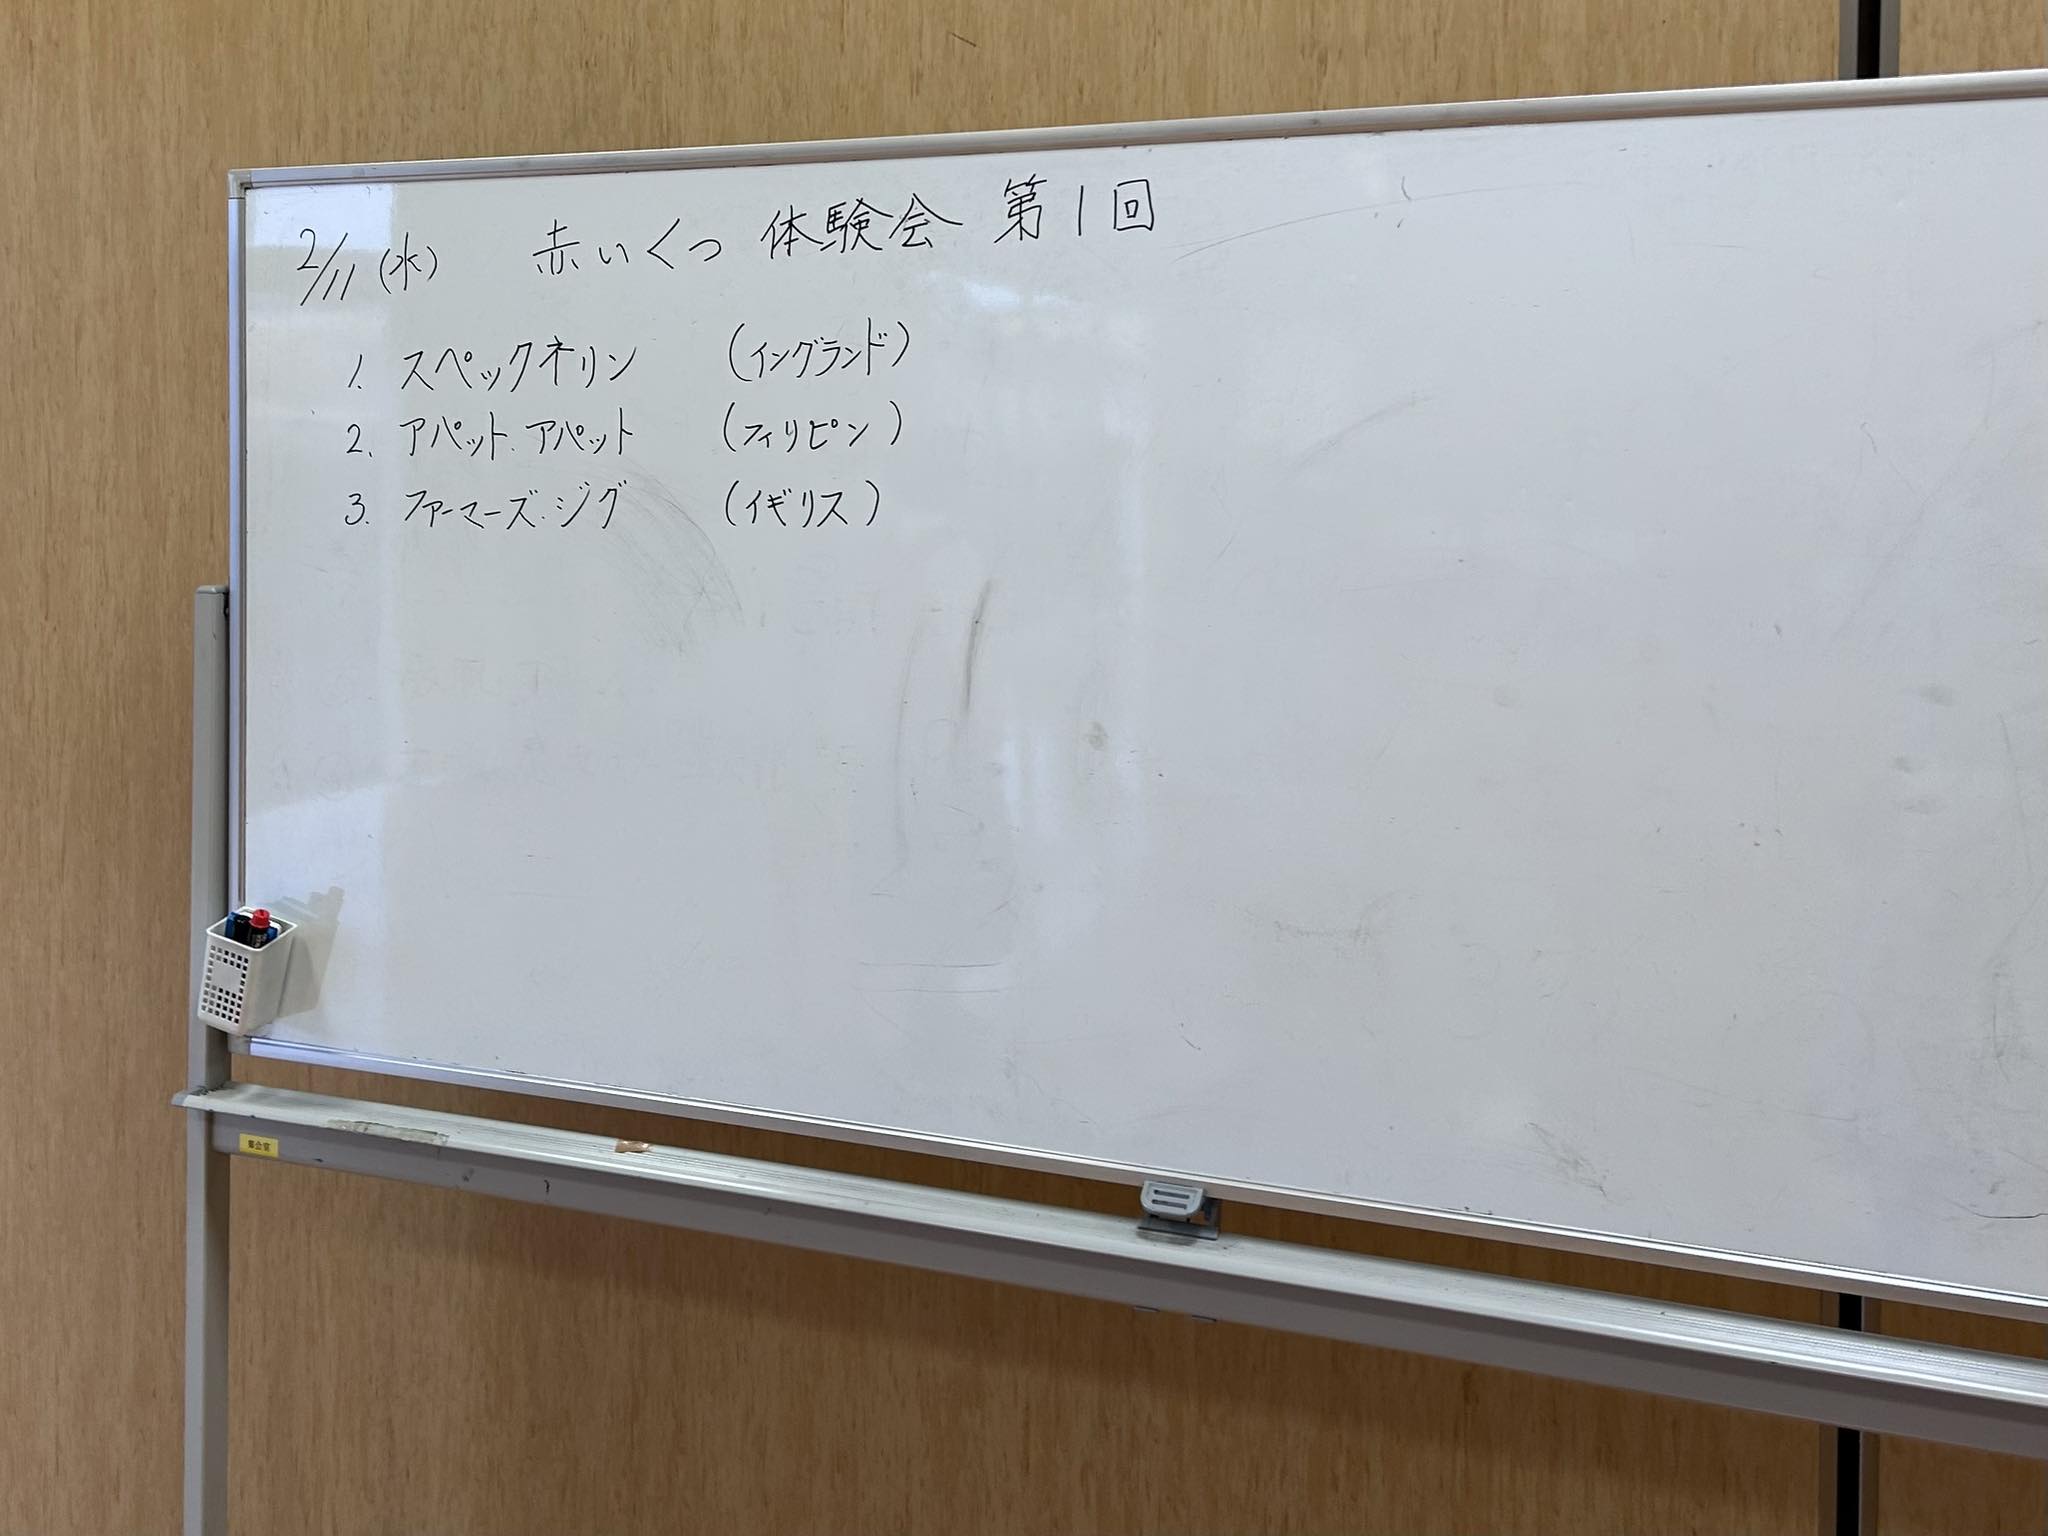 2/11 (水) 赤いくつ 体験会 第1回
1. スペックネリン (イングランド)
2. アパット・アパット (フィリピン)
3. ファーマーズ・ジグ (イギリス)
集会室